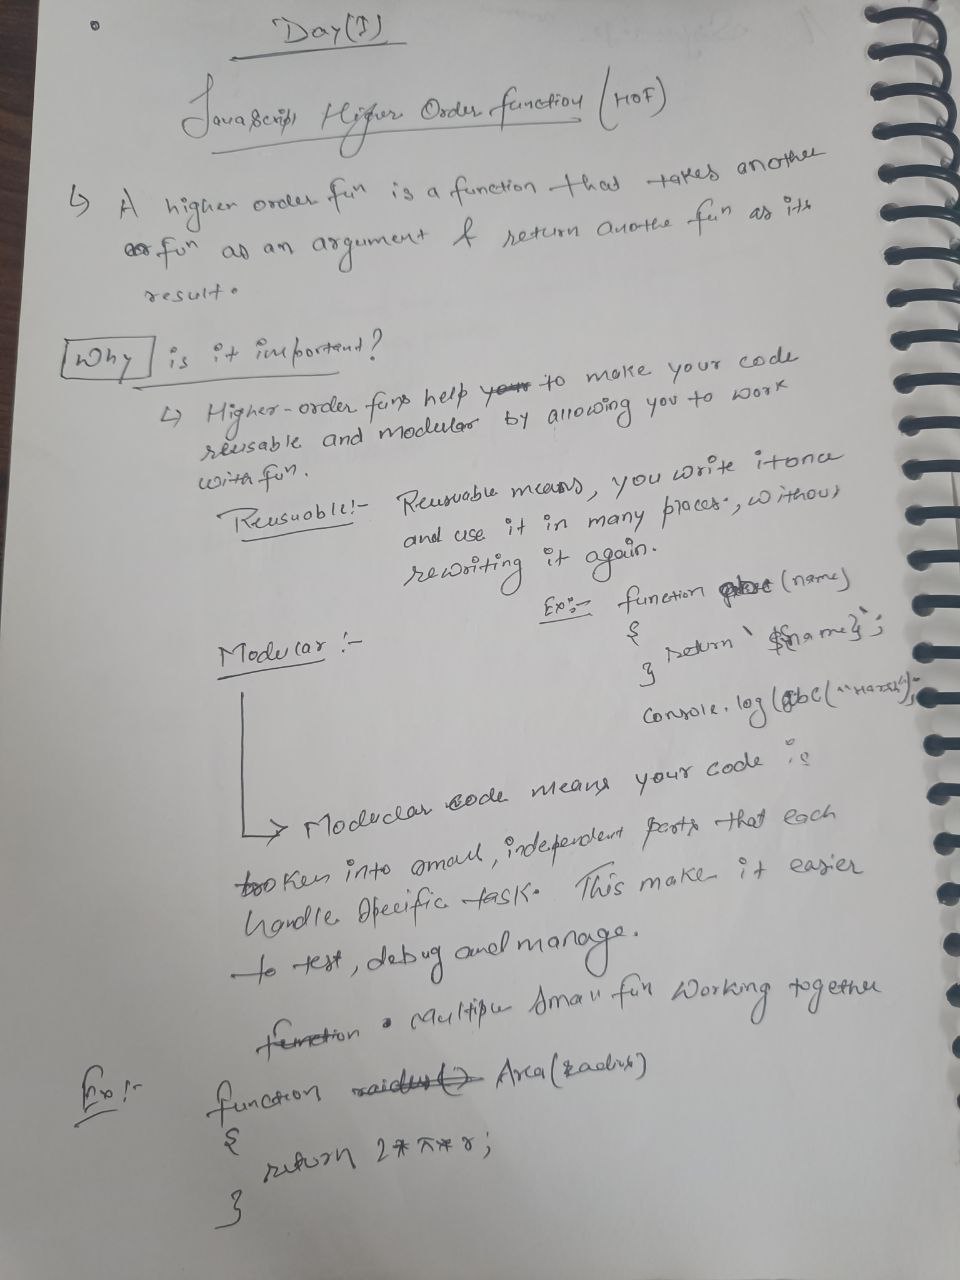 Day(1)
JavaScript Higher Order function (HOF)
↳ A higher order fun is a function that takes another
fun as an argument & return anothe fun as its
result.
Why is it important?
↳ Higher-order funs help to make your code
reusable and modular by allowing you to work
with fun.
Reusuable:- Reusuable means, you write it once
and use it in many places, without
rewriting it again.
Ex:- function abc (name)
{
return `${name}`;
}
console.log(abc("Harsh");
Modular :-
→ Modular code means your code is
broken into small, independent parts that each
handle specific task. This make it easier
to test, debug and manage.
• Multiple small fun working together
Ex:- function Area(radius)
{
return 2*π*r;
}